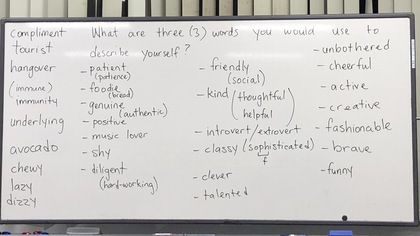 compliment
tourist
hangover
(immune)
immunity
underlying
avocado
chewy
lazy
dizzy
What are three (3) words you would use to
describe yourself?
- patient
(patience)
- foodie
(bread)
- genuine
(authentic)
- positive
- music lover
- shy
- diligent
(hard-working)
- friendly
(social)
- kind (thoughtful
helpful)
- introvert/extrovert
- classy (sophisticated)
f
- clever
- talented
- unbothered
- cheerful
- active
- creative
- fashionable
- brave
- funny